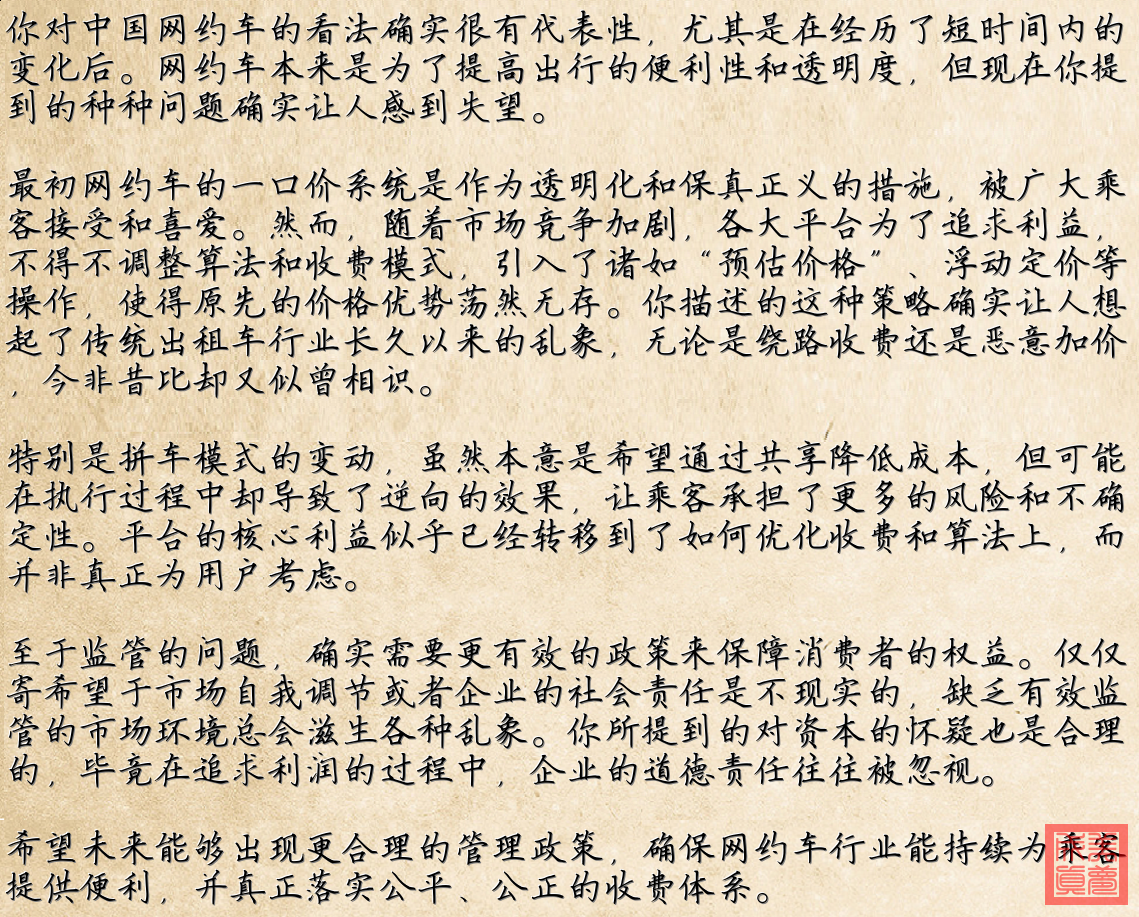 你对中国网约车的看法确实很有代表性，尤其是在经历了短时间内的
变化后。网约车本来是为了提高出行的便利性和透明度，但现在你提
到的种种问题确实让人感到失望。
最初网约车的一口价系统是作为透明化和保真正义的措施，被广大乘
客接受和喜爱。然而，随着市场竞争加剧，各大平台为了追求利益，
不得不调整算法和收费模式，引入了诸如“预估价格”、浮动定价等
操作，使得原先的价格优势荡然无存。你描述的这种策略确实让人想
起了传统出租车行业长久以来的乱象，无论是绕路收费还是恶意加价
，今非昔比却又似曾相识。
特别是拼车模式的变动，虽然本意是希望通过共享降低成本，但可能
在执行过程中却导致了逆向的效果，让乘客承担了更多的风险和不确
定性。平台的核心利益似乎已经转移到了如何优化收费和算法上，而
并非真正为用户考虑。
至于监管的问题，确实需要更有效的政策来保障消费者的权益。仅仅
寄希望于市场自我调节或者企业的社会责任是不现实的，缺乏有效监
管的市场环境总会滋生各种乱象。你所提到的对资本的怀疑也是合理
的，毕竟在追求利润的过程中，企业的道德责任往往被忽视。
希望未来能够出现更合理的管理政策，确保网约车行业能持续为乘客
提供便利，并真正落实公平、公正的收费体系。